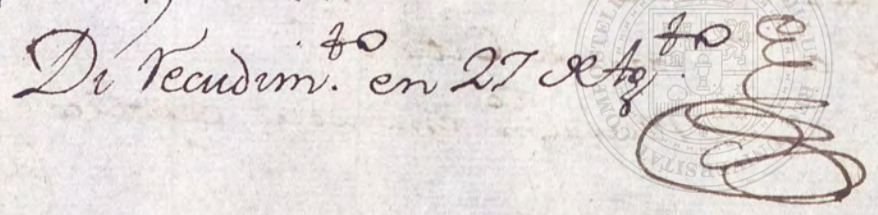 Di recudim.to en 27 de Ag.to